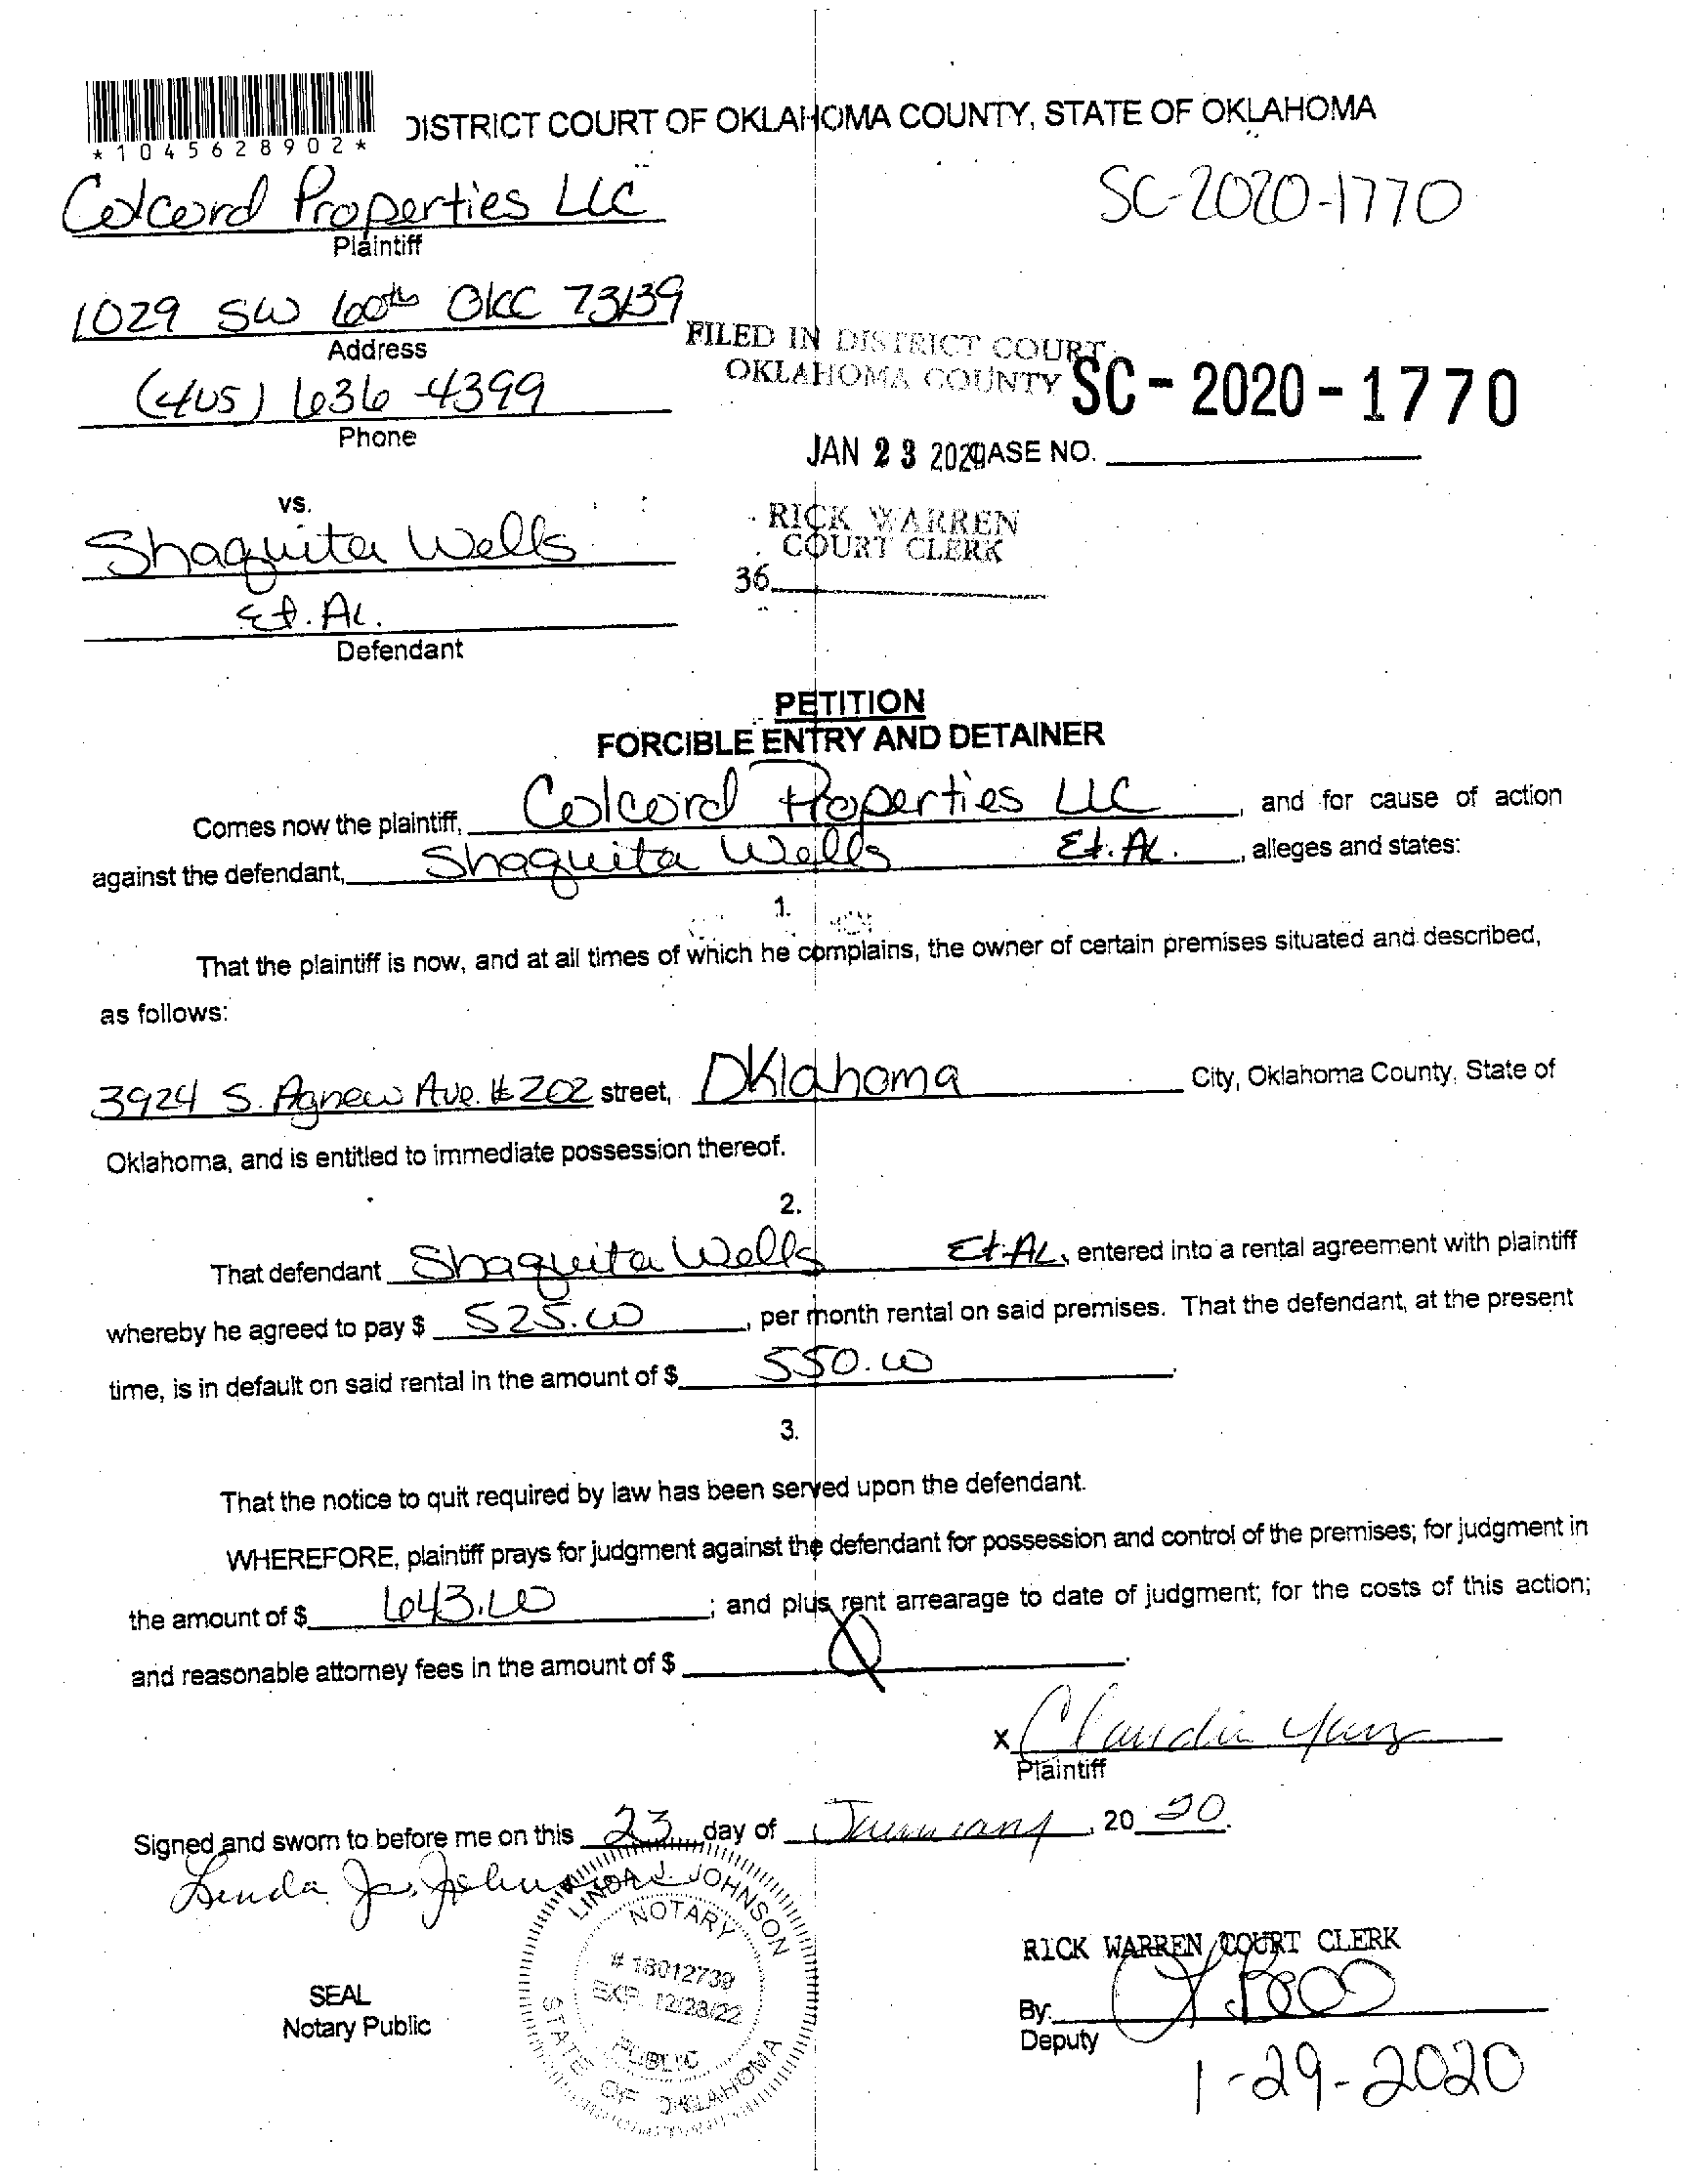 *1045628902*
DISTRICT COURT OF OKLAHOMA COUNTY, STATE OF OKLAHOMA
Colcord Properties LLC
SC-2020-1770
Plaintiff
1029 SW 60th OKC 73139
Address
FILED IN DISTRICT COURT
OKLAHOMA COUNTY
SC-2020-1770
(405) 636-4399
Phone
JAN 23 2020
CASE NO.
vs.
RICK WARREN
COURT CLERK
Shaquita Wells
36
Et. AL.
Defendant
PETITION
FORCIBLE ENTRY AND DETAINER
Comes now the plaintiff, Colcord Properties LLC, and for cause of action
against the defendant, Shaquita Wells Et. AL., alleges and states:
1.
That the plaintiff is now, and at all times of which he complains, the owner of certain premises situated and described,
as follows:
3924 S. Agnew Ave. #202 street, Oklahoma City, Oklahoma County, State of
Oklahoma, and is entitled to immediate possession thereof.
2.
That defendant Shaquita Wells Et. AL, entered into a rental agreement with plaintiff
whereby he agreed to pay $ 525.00, per month rental on said premises. That the defendant, at the present
time, is in default on said rental in the amount of $ 550.00.
3.
That the notice to quit required by law has been served upon the defendant.
WHEREFORE, plaintiff prays for judgment against the defendant for possession and control of the premises; for judgment in
the amount of $ 643.00; and plus rent arrearage to date of judgment; for the costs of this action;
and reasonable attorney fees in the amount of $
x Claudia
Plaintiff
Signed and sworn to before me on this 23 day of January, 2020.
Linda J. Johnson
LINDA J. JOHNSON
NOTARY
# 18012739
EXP. 12/28/22
PUBLIC
STATE OF OKLAHOMA
SEAL
Notary Public
RICK WARREN COURT CLERK
By:
Deputy
1-29-2020